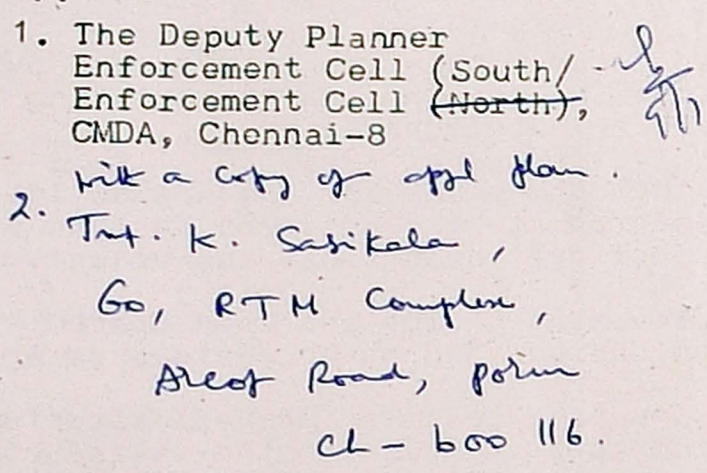 1. The Deputy Planner
Enforcement Cell (South/
Enforcement Cell (North),
CMDA, Chennai-8
with a copy of appd plan.
2. Tmt. K. Sasikala,
60, RTM Complex,
Arcot Road, porur
ch - 600 116.